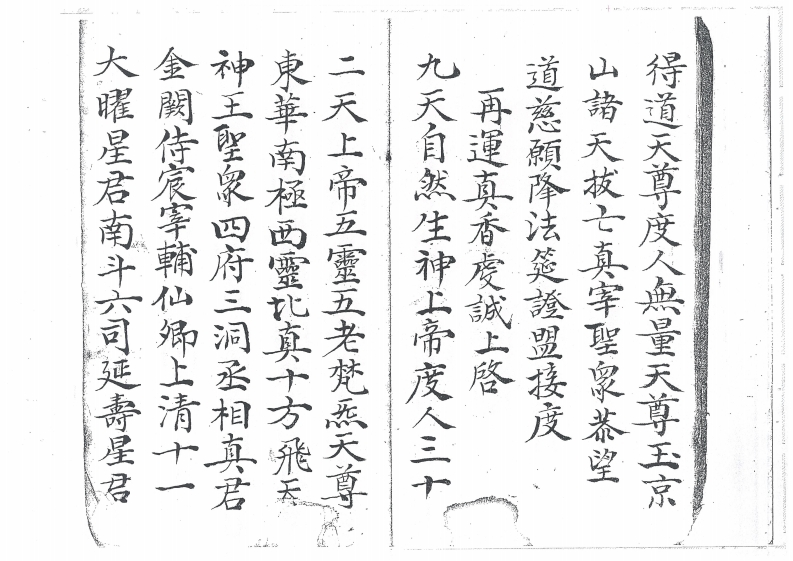 得道天尊度人無量天尊玉京
山諸天拔亡真宰聖衆恭望
道慈願降法筵證盟接度
再運真香虔誠上啓
九天自然生神上帝度人三十
二天上帝五靈五老梵炁天尊
東華南極西靈北真十方飛天
神王聖衆四府三洞丞相真君
金闕侍宸宰輔仙卿上清十一
大曜星君南斗六司延壽星君